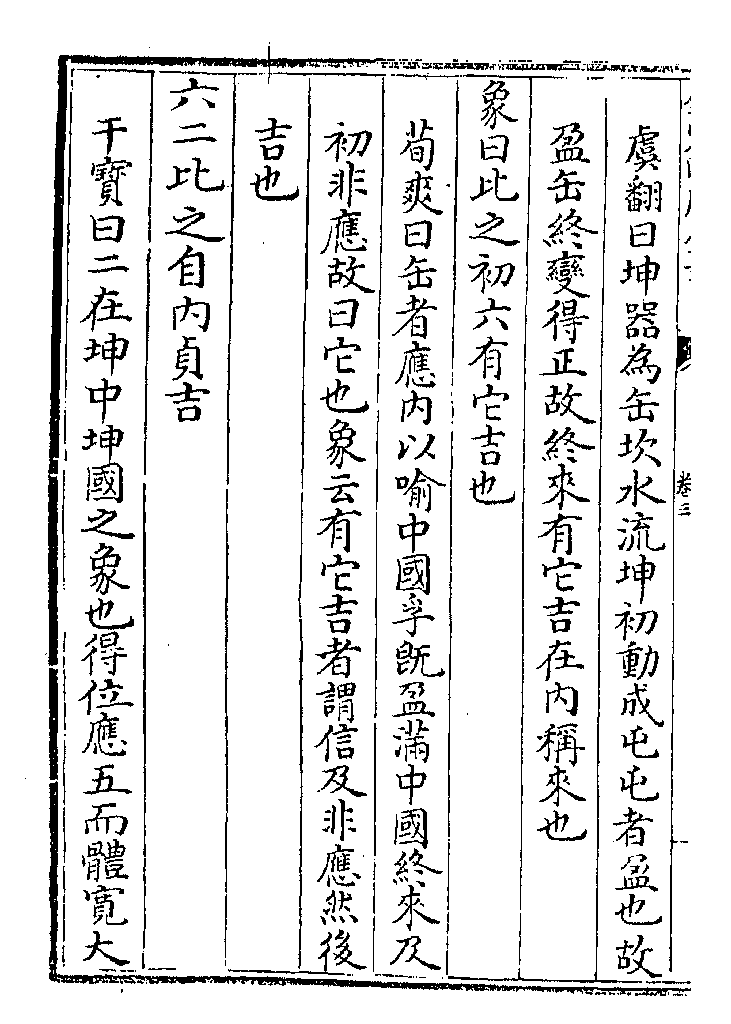 虞翻曰坤器為缶坎水流坤初動成屯屯者盈也故
盈缶終變得正故終來有它吉在內稱來也
象曰比之初六有它吉也
荀爽曰缶者應內以喻中國孚既盈滿中國終來及
初非應故曰它也象云有它吉者謂信及非應然後
吉也
六二比之自內貞吉
干寶曰二在坤中坤國之象也得位應五而體寬大
卷三